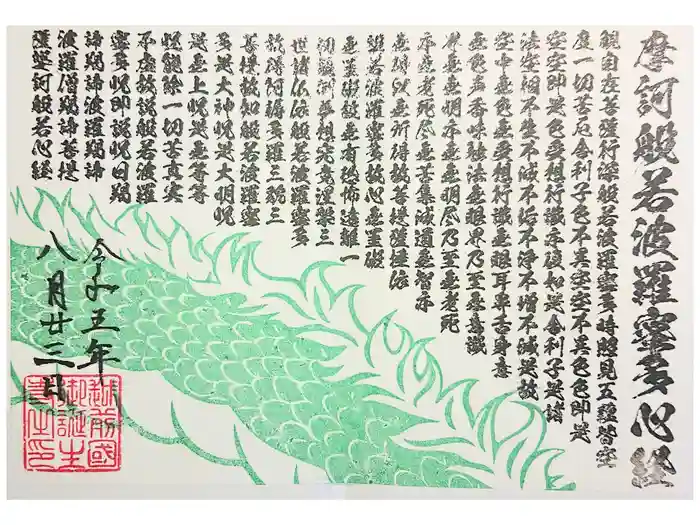 摩訶般若波羅蜜多心経
観自在菩薩行深般若波羅蜜多時照見五蘊皆空
度一切苦厄舎利子色不異空空不異色色即是
空空即是色受想行識亦復如是舎利子是諸
法空相不生不滅不垢不浄不増不減是故
空中無色無受想行識無眼耳鼻舌身意
無色声香味触法無眼界乃至無意識
界無無明亦無無明尽乃至無老死
亦無老死尽無苦集滅道無智亦
無得以無所得故菩提薩埵依
般若波羅蜜多故心無罣礙
無罣礙故無有恐怖遠離一
切顛倒夢想究竟涅槃三
世諸仏依般若波羅蜜多
故得阿耨多羅三藐三
菩提故知般若波羅蜜
多是大神呪是大明呪
是無上呪是無等等
呪能除一切苦真実
不虚故説般若波羅
蜜多呪即説呪曰羯
諦羯諦波羅羯諦
波羅僧羯諦菩提
薩婆訶般若心経
令和五年
八月廿三日
越前國
御誕生
寺之印